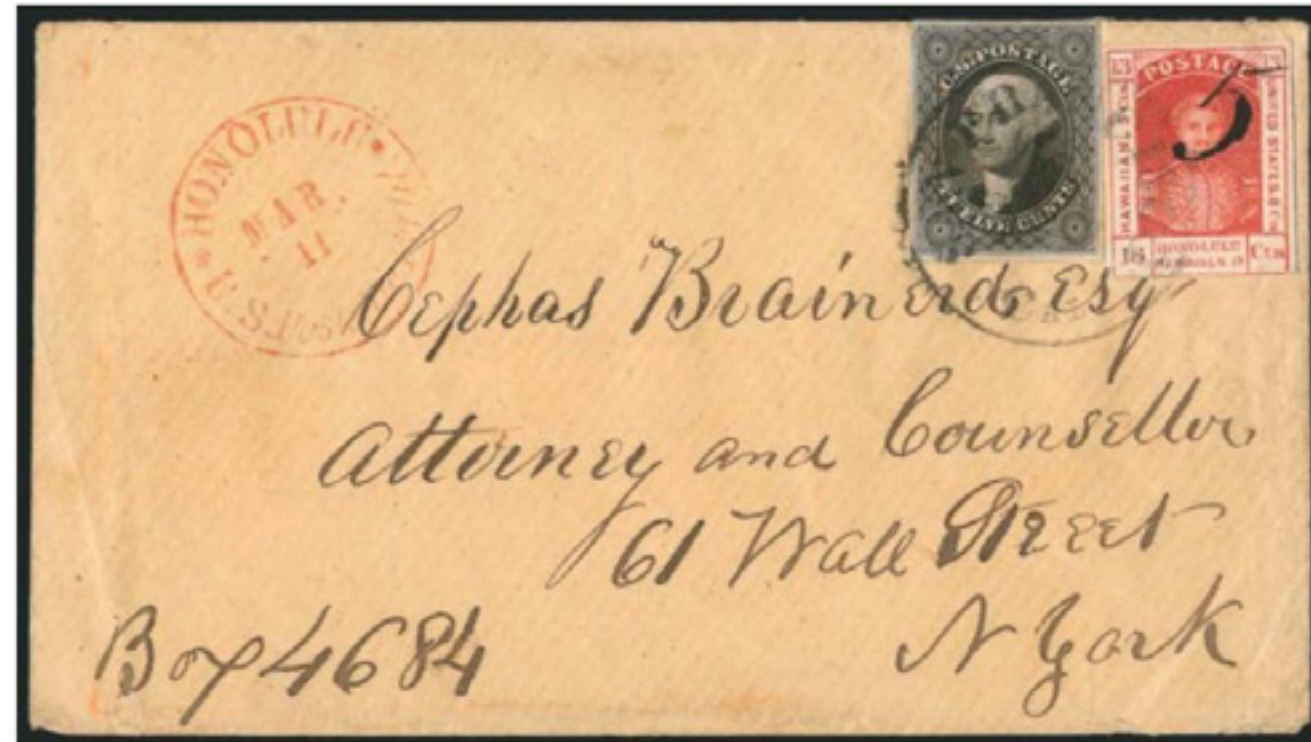 HONOLULU
U.S. Pos
MAR.
11
U.S. POSTAGE
TWELVE CENTS
POSTAGE
HAWAIIAN 5 Cts.
UNITED STATES 8 Cts
HONOLULU
Cts
5
Cephas Brainerd, Esq
Attorney and Counsellor
61 Wall Street
N York
Box 4684